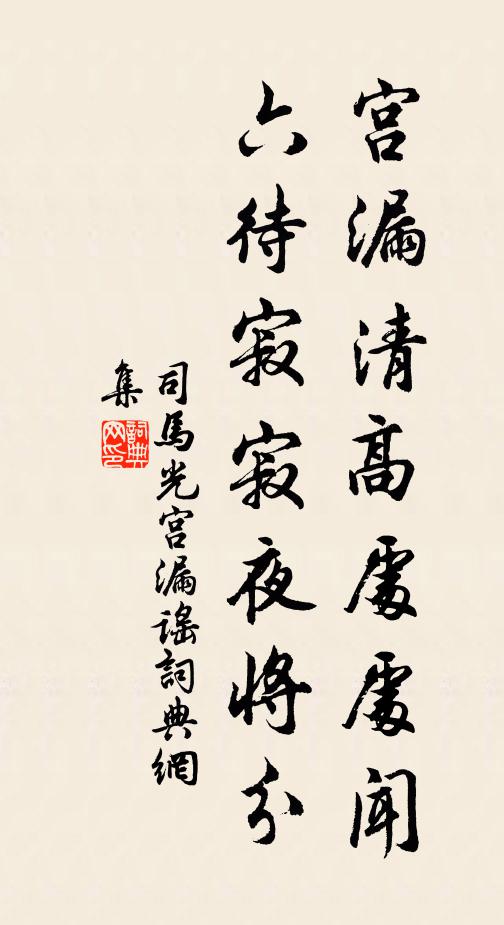 宮漏清高處處聞
六待寂寂夜將分
司馬光宮漏謠詞典網
集
詞典
网印